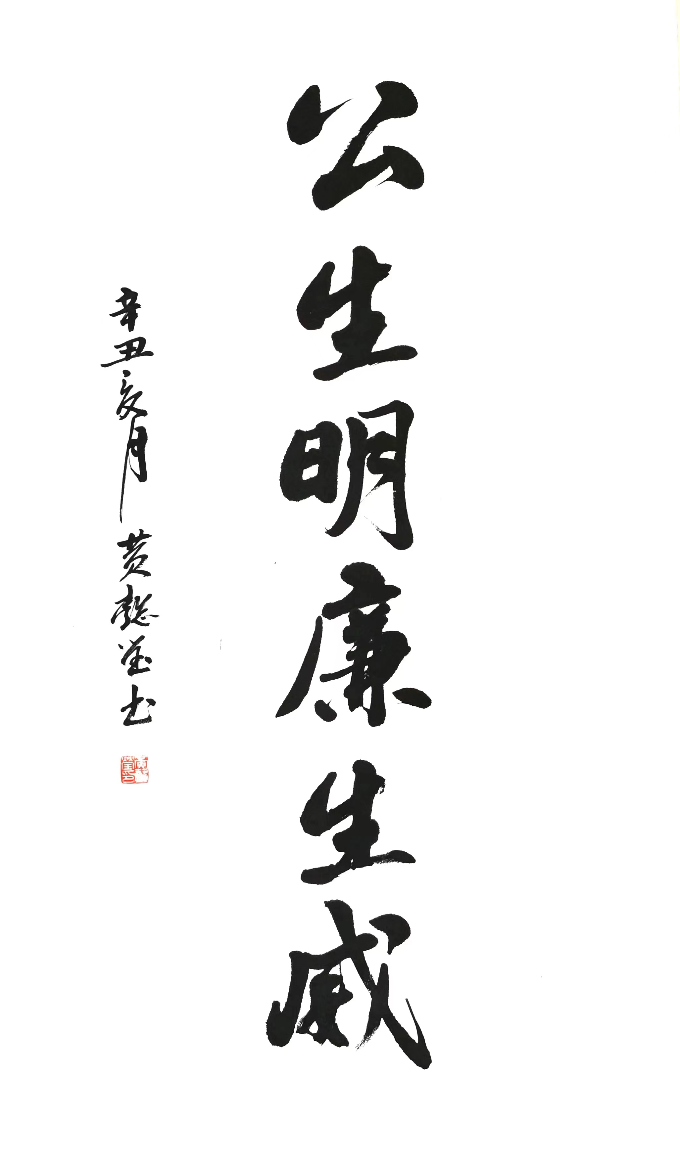 公生明廉生威
辛丑亥月 黄懿堂书